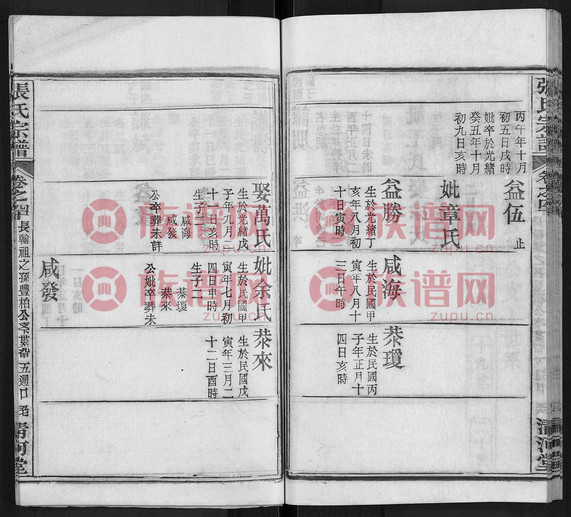 張氏宗譜
卷之四
清河堂
丙午年十月
初五日戌時
妣卒於光緒
癸五年十月
初九日亥時
益伍 止
妣章氏
益勝
生於光緒丁
亥年八月初
十日寅時
咸海
生於民國甲
寅年八月十
三日午時
恭瓊
生於民國丙
子年正月十
四日亥時
娶萬氏
生於光緒戌
子年九月二
十一日亥時
生子二
咸海
咸發
公卒葬未詳
妣余氏
生於民國甲
寅年七月初
四日申時
生子二
恭瓊
恭來
公妣卒葬未
恭來
生於民國戊
寅年三月二
十二日酉時
咸發
張氏宗譜
卷之四
長輸祖之孫豊柏公
五週口
清河堂
族谱网
zupu.cn
族谱网
zupu.cn
族谱网
zupu.cn
族谱网
zupu.cn